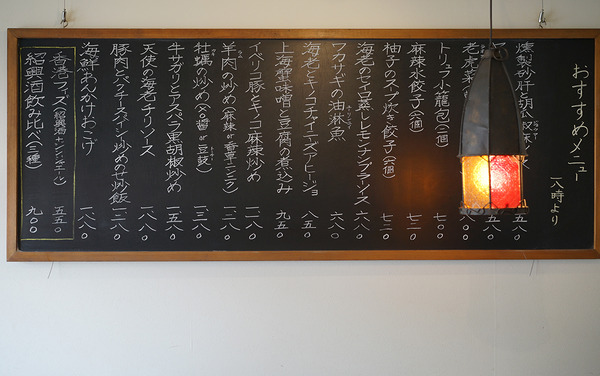 おすすめメニュー
一八時より
燻製砂肝と胡
五八〇
九八〇
老虎菜
トリュフ小籠包(二個)
七〇〇
麻辣水餃子(六個)
七二〇
柚子のスープ炊き餃子(六個)
七二〇
海老のせイカ蒸しレモンナンプラーソース
六八〇
フカサギの油淋魚
六八〇
海老とキノコチャイニーズアヒージョ
八五〇
上海蟹味噌と豆腐の煮込み
九五〇
イベリコ豚とキノコ麻辣炒め
一二八〇
羊肉の炒め(麻辣 or 香草クミンラム)
一二八〇
牡蠣の炒め(XO醤 or 豆豉)
一三八〇
牛サガリとアスパラ黒胡椒炒め
一五八〇
天使の海老チリソース
一八八〇
豚肉とパクチースパイシー炒めのせ炒飯
一二八〇
海鮮あんかけおこげ
一八八〇
香港フィズ(紹興酒+ジンジャエール)
五五〇
紹興酒飲み比べ(三種)
九〇〇